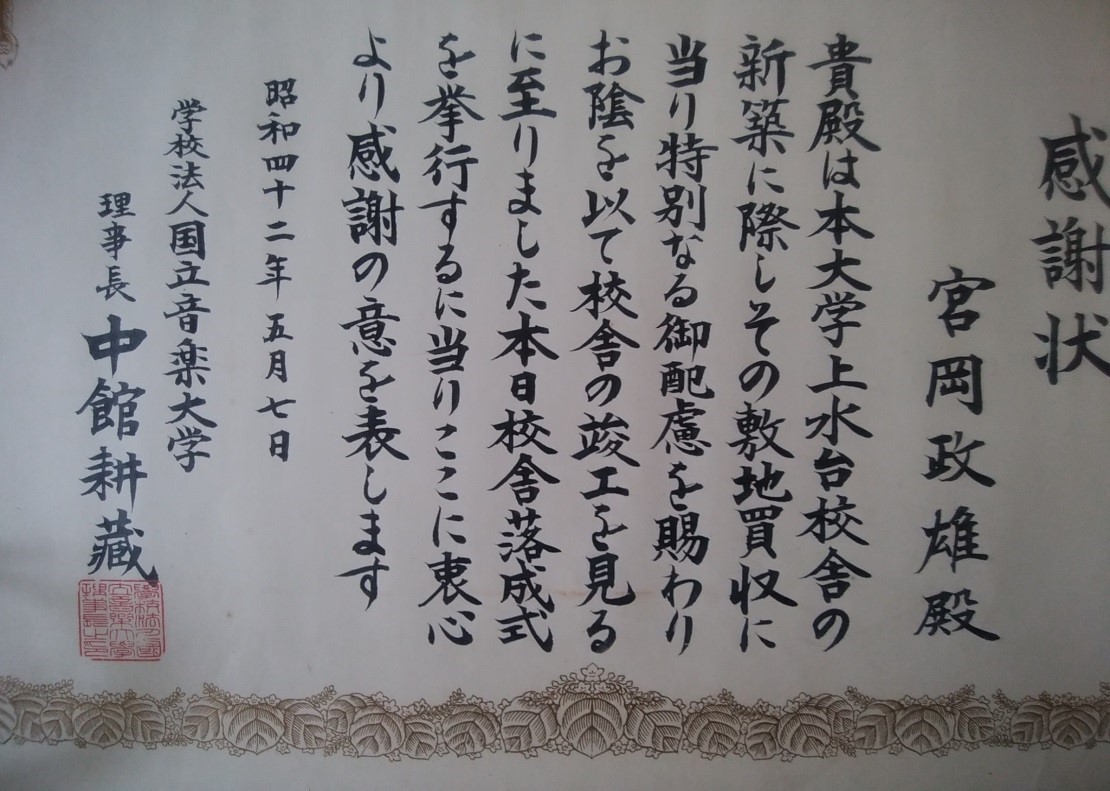 感謝状
宮岡政雄殿
貴殿は本大学上水台校舎の
新築に際しその敷地買収に
当り特別なる御配慮を賜わり
お陰を以て校舎の竣工を見る
に至りました本日校舎落成式
を挙行するに当りここに衷心
より感謝の意を表します
昭和四十二年五月七日
学校法人国立音楽大学
理事長 中館耕蔵